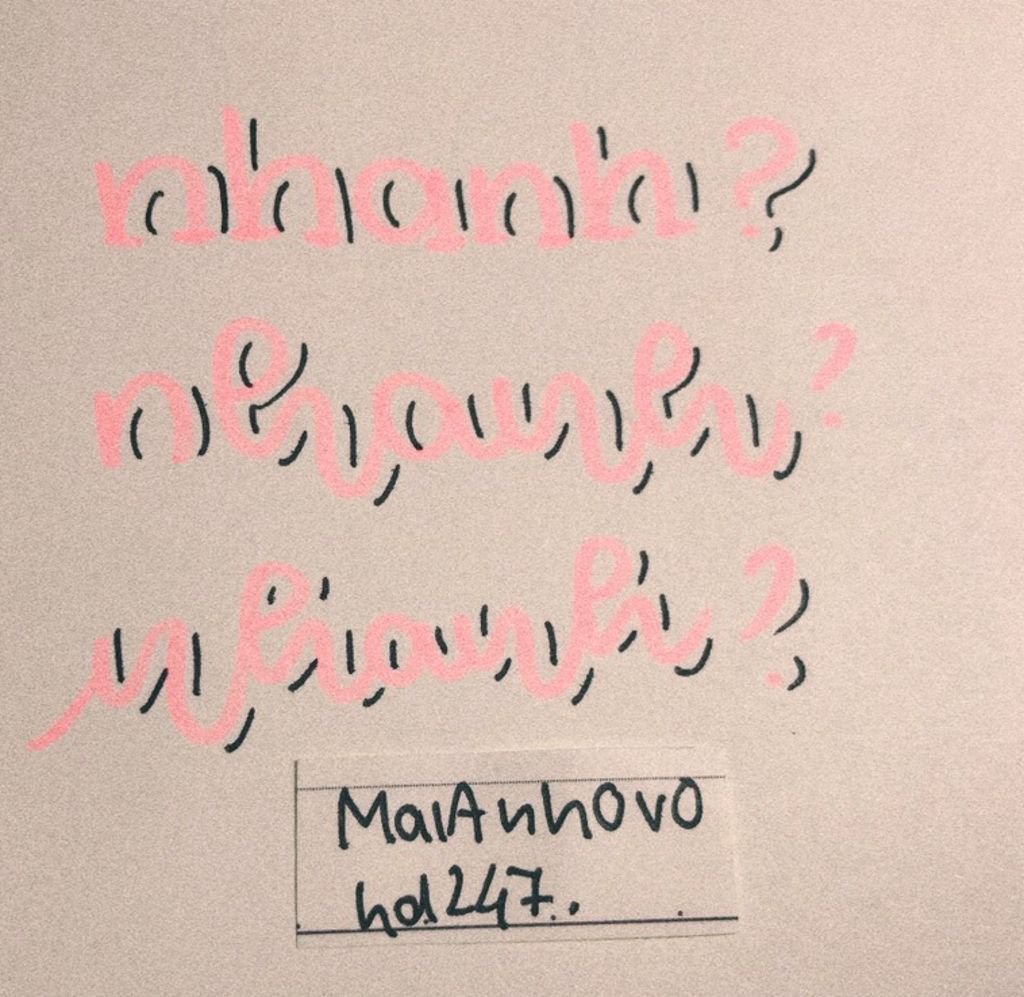 nhanh?
nhanh?
nhanh?
MaiAnh0v0
hd247..